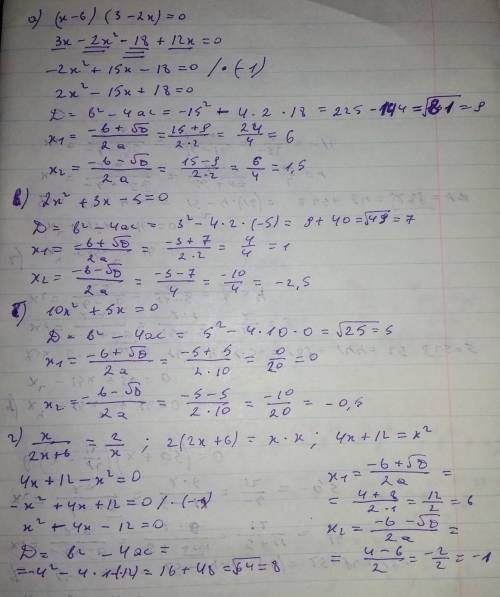 а) (x-6) (3-2x)=0
3x - 2x² - 18 + 12x = 0
-2x² + 15x - 18 = 0 /·(-1)
2x² - 15x + 18 = 0
D = b² - 4ac = -15² - 4·2·18 = 225 - 144 = √81 = 9
x1 = (-b+√D)/2a = (15+9)/(2·2) = 24/4 = 6
x2 = (-b-√D)/2a = (15-9)/(2·2) = 6/4 = 1,5
в) 2x² + 3x - 5 = 0
D = b² - 4ac = 3² - 4·2·(-5) = 9 + 40 = √49 = 7
x1 = (-b+√D)/2a = (-3+7)/(2·2) = 4/4 = 1
x2 = (-b-√D)/2a = (-3-7)/4 = -10/4 = -2,5
б) 10x² + 5x = 0
D = b² - 4ac = 5² - 4·10·0 = √25 = 5
x1 = (-b+√D)/2a = (-5+5)/(2·10) = 0/20 = 0
x2 = (-b-√D)/2a = (-5-5)/(2·10) = -10/20 = -0,5
г) x/(2x+6) = 2/x ; 2(2x+6) = x·x ; 4x+12 = x²
4x + 12 - x² = 0
-x² + 4x + 12 = 0 /·(-1)
x² - 4x - 12 = 0
D = b² - 4ac =
= -4² - 4·1·(-12) = 16 + 48 = √64 = 8
x1 = (-b+√D)/2a =
= (4+8)/(2·1) = 12/2 = 6
x2 = (-b-√D)/2a =
= (4-6)/2 = -2/2 = -1